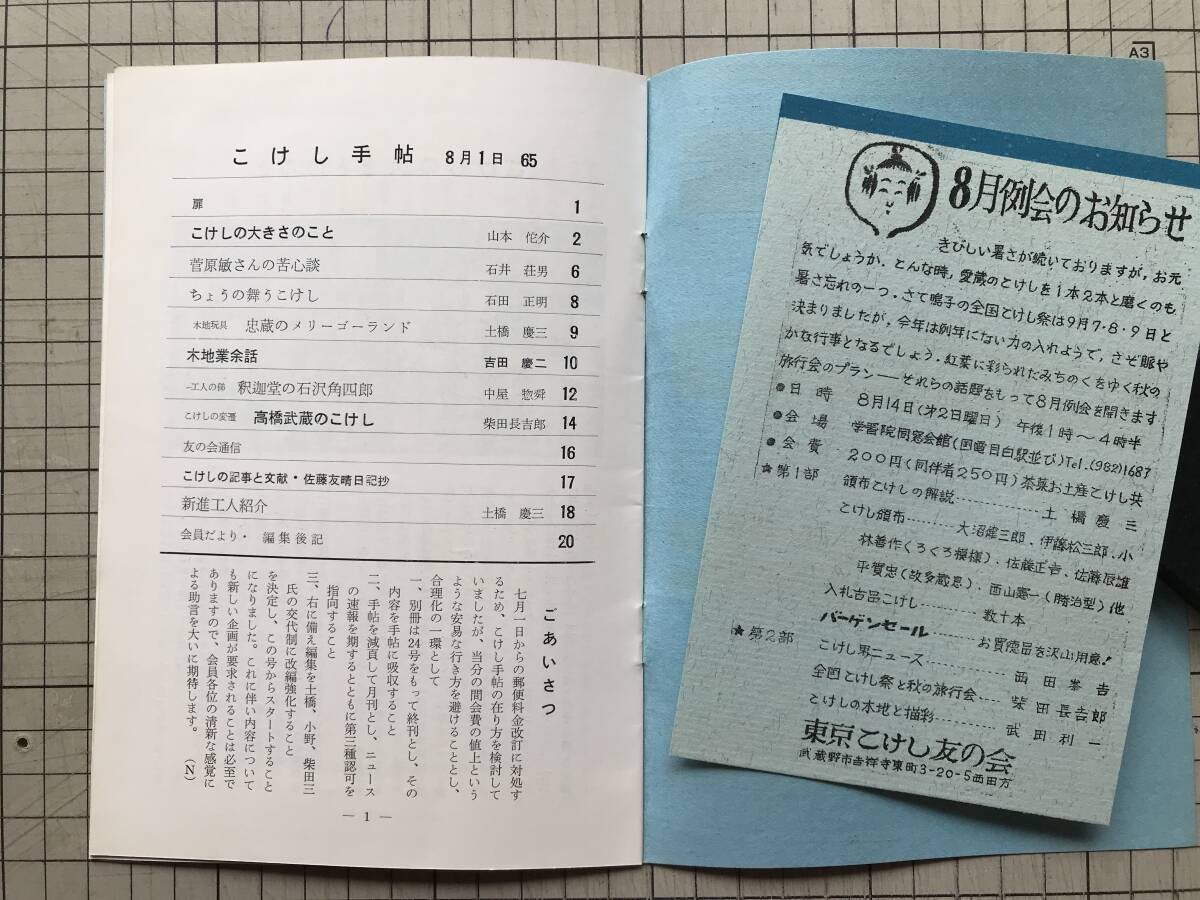 こけし手帖 8月1日 65
扉 1
こけしの大きさのこと 山本 佗介 2
菅原敏さんの苦心談 石井 荘男 6
ちょうの舞うこけし 石田 正明 8
木地玩具 忠蔵のメリーゴーランド 土橋 慶三 9
木地業余話 吉田 慶二 10
一工人の俤 釈迦堂の石沢角四郎 中屋 惣舜 12
こけしの変遷 高橋武蔵のこけし 柴田長吉郎 14
友の会通信 16
こけしの記事と文献・佐藤友晴日記抄 17
新進工人紹介 土橋 慶三 18
会員だより・編集後記 20
ごあいさつ
七月一日からの郵便料金改訂に対処す
るため、こけし手帖の在り方を検討して
いましたが、当分の間会費の値上という
ような安易な行き方を避けることとし、
合理化の一環として
一、別冊は24号をもって終刊とし、その
内容を手帖に吸収すること
二、手帖を減頁して月刊とし、ニュース
の速報を期するとともに第三種認可を
指向すること
三、右に備え編集を土橋、小野、柴田三
氏の交代制に改編強化すること
を決定し、この号からスタートすること
になりました。これに伴い内容について
も新しい企画が要求されることは必至で
ありますので、会員各位の清新な感覚に
よる助言を大いに期待します。
(N)
— 1 —
A3
8月例会のお知らせ
きびしい暑さが続いておりますが、お元
気でしょうか。こんな時、愛蔵のこけしを1本2本と磨くのも
暑さ忘れの一つ。さて鳴子の全国こけし祭は9月7・8・9日と
決まりましたが、今年は例年にない力の入れようで、さぞ賑や
かな行事となるでしょう。紅葉に彩られたみちのくをゆく秋の
旅行会のプラン——それらの話題をもって8月例会を開きます
●日時 8月14日(第2日曜日) 午後1時〜4時半
●会場 学習院同窓会館(国電目白駅並び)Tel.(982)1687
●会費 200円(同伴者250円)茶菓お土産こけし共
★第1部 頒布こけしの解説 土橋慶三
こけし頒布 大沼健三郎、伊藤松三郎、小
林善作(くろくろ模様)、佐藤正吉、佐藤辰雄
平賀忠(故多蔵息)、西山憲一(勝治型)他
入札古品こけし 数十本
バーゲンセール お買徳品を沢山用意!
★第2部 こけし界ニュース 西田峯吉
全国こけし祭と秋の旅行会 柴田長吉郎
こけしの木地と描彩 武田利一
東京こけし友の会
武蔵野市吉祥寺東町3-20-5西田方